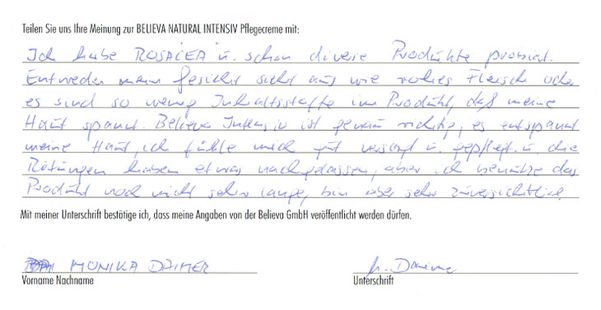 Teilen Sie uns Ihre Meinung zur BELIEVA NATURAL INTENSIV Pflegecreme mit:
Ich habe ROSACEA u. schon diverse Produkte probiert.
Entweder mein Gesicht sieht aus wie rohes Fleisch oder
es sind so wenig Inhaltsstoffe im Produkt, daß meine
Haut spannt. Believa Intensiv ist genau richtig, es entspannt
meine Haut, ich fühle mich gut versorgt u. gepflegt u. die
Rötungen haben etwas nachgelassen, aber ich benütze das
Produkt noch nicht sehr lange, bin aber sehr zuversichtlich.
Mit meiner Unterschrift bestätige ich, dass meine Angaben von der Believa GmbH veröffentlicht werden dürfen.
MONIKA DAIMER
Vorname Nachname
Unterschrift